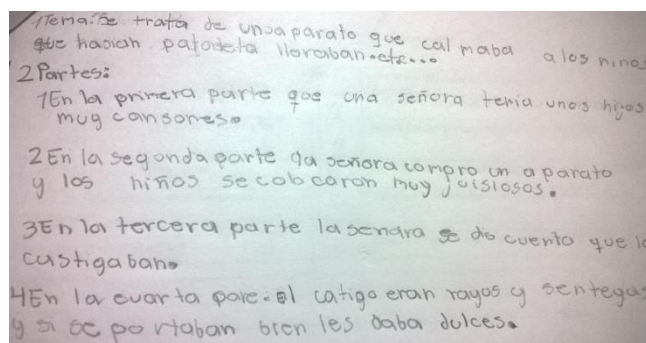 1Tema: Se trata de unoaparato que calmaba a los niños
que hacian patadeta lloraban.etc...
2 Partes:
1En la primera parte que una señora tenia unos hijos
muy cansones.
2 En la segonda parte la señora compro un aparato
y los niños se cobcaron muy juisiosos.
3En la tercera parte la senora se dio cuento que lo
castigaban.
4En la cuarta pare:el catigo eran rayos y sentegas
y si se portaban bien les daba dulces.